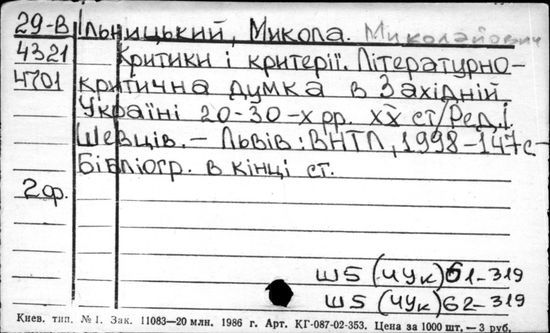 29-В Ільницький, Микола. Миколайович
4321 Критики і критерії. Літературно-
4701 критична думка в Західній
Україні 20-30-х рр. ХХ ст/Ред.І.
Шевців.– Львів: ВНТЛ, 1998–147с–
Бібліогр. в кінці ст.
2ф.
Ш5 (4Ук) 61-319
Ш5 (4Ук) 62-319
Киев. тип. №1. Зак. 11083—20 млн. 1986 г. Арт. КГ-087-02-353. Цена за 1000 шт. — 3 руб.